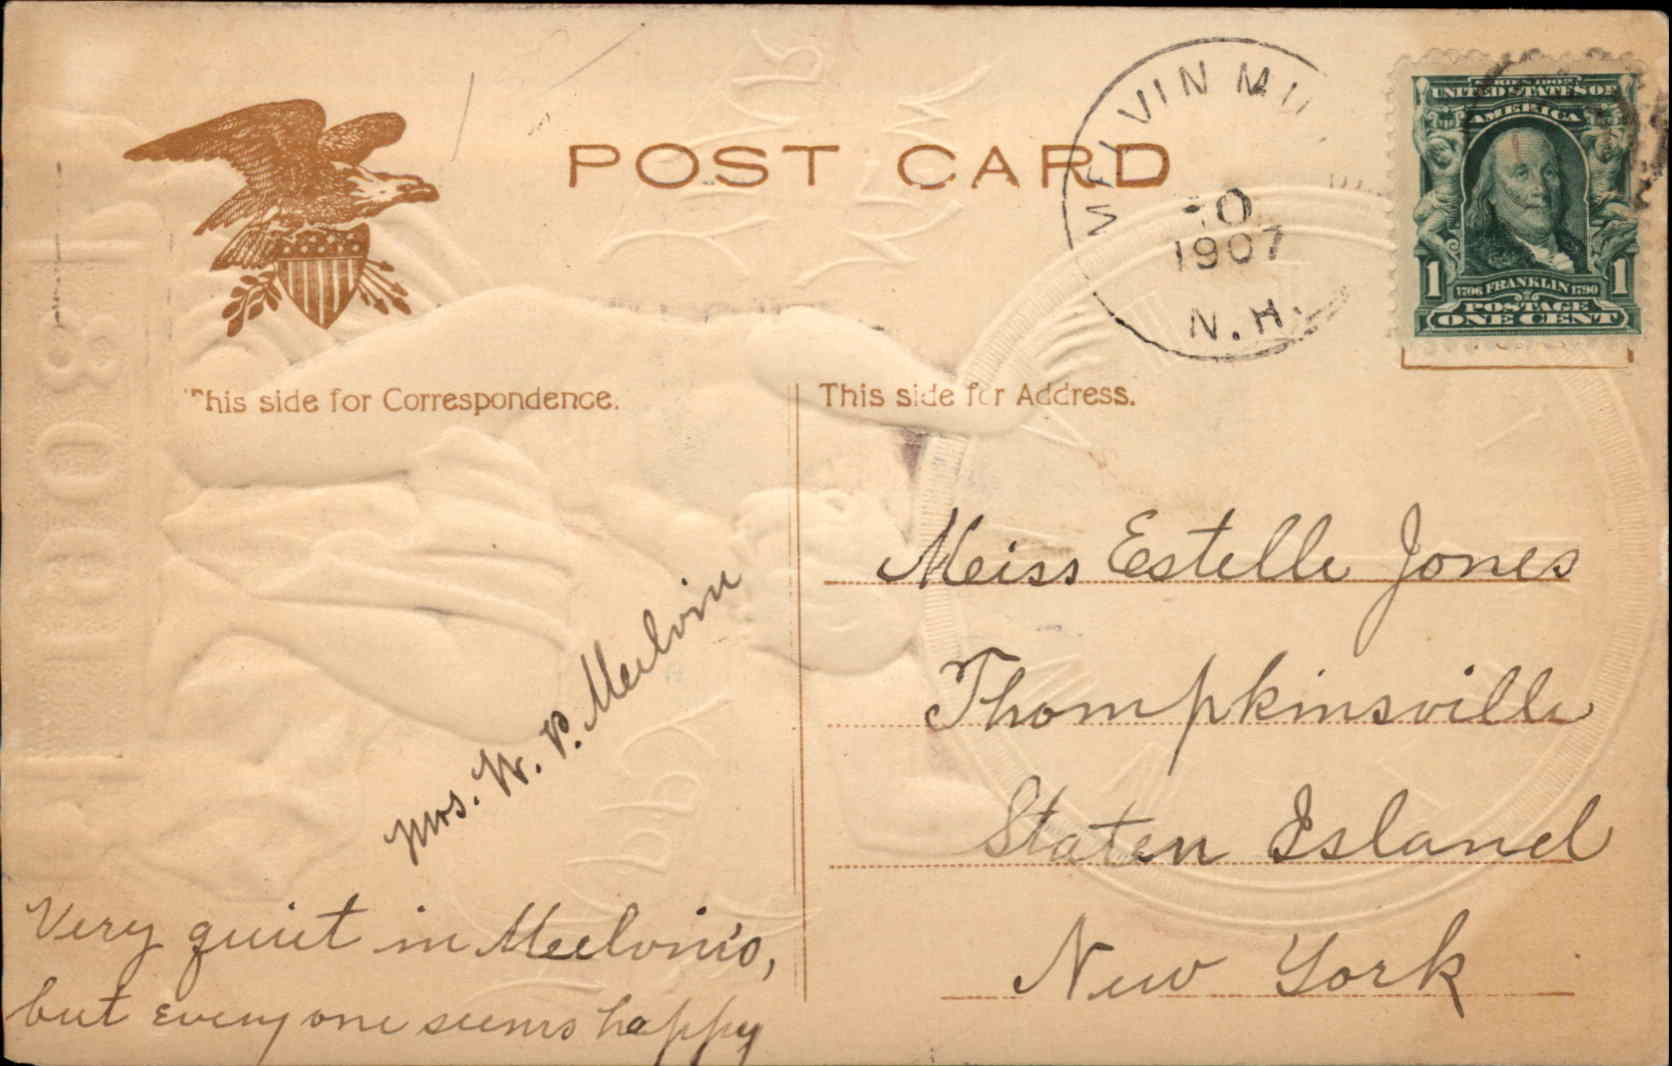 POST CARD
MELVIN MI
0
1907
N.H.
SERIES 1902
UNITED STATES OF
AMERICA
1 1706 FRANKLIN 1790 1
POSTAGE
ONE CENT
This side for Correspondence.
This side for Address.
Miss Estelle Jones
Thompkinsville
Staten Island
New York
Mrs. W. P. Melvin
Very quiet in Melvin's,
but every one seems happy